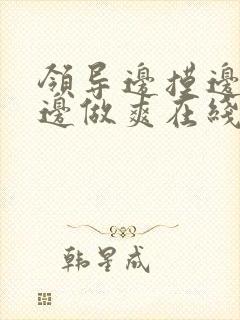 領导邊摸邊
邊做爽在綫
韩星成